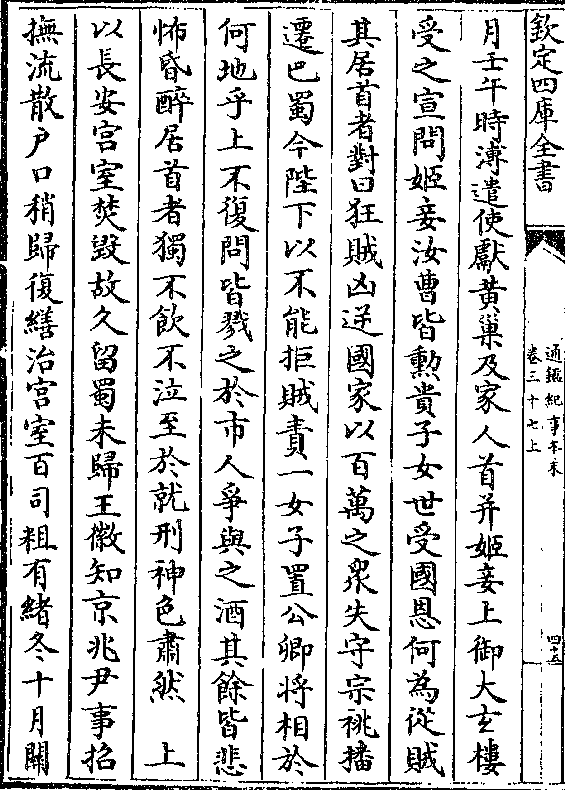 欽定四庫全書
通鑑紀事本末
卷三十七上
四十五
月壬午時溥遣使獻黃巢及家人首并姬妾上御大玄樓
受之宣問姬妾汝曹皆勲貴子女世受國恩何為從賊
其居首者對曰狂賊凶逆國家以百萬之衆失守宗祧播
遷巴蜀今陛下以不能拒賊責一女子置公卿將相於
何地乎上不復問皆戮之於市人爭與之酒其餘皆悲
怖昏醉居首者獨不飲不泣至於就刑神色肅然 上
以長安宫室焚毁故久留蜀未歸王徽知京兆尹事招
撫流散户口稍歸復繕治宫室百司粗有緒冬十月關